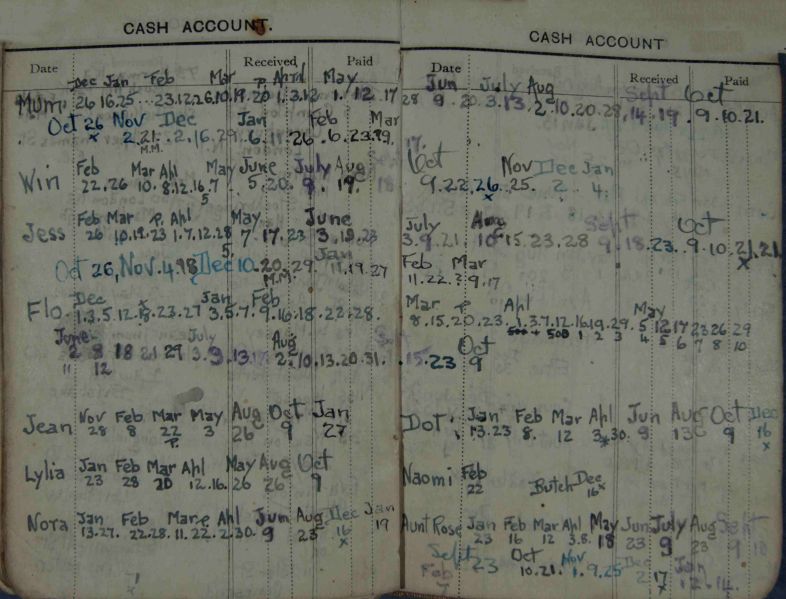 CASH ACCOUNT.
Date Received Paid
Dec Jan Feb Mar P. April May
Mum 26 16.25 ...23.12.26.10.19.20 1.3.12 1. 12 17
Oct 26 Nov Dec Jan Feb Mar
x 2.21. 2.16.29 6.11.26 .6.23.29.
M.M.
Feb Mar Ahl May June July Aug
Win 22.26 10. 8.12.16.7 5.20. 9. 19. 18
5
Feb Mar P. Ahl May June
Jess 26 10.19.23 1.7.12.28 7.17.23 3.19.23
5.
Oct 26, Nov. 4.18 Dec 10.20.29 Jan 11.19.27
M.M.
Dec Jan Feb
Flo. 1.3.5.12.15.23.27 3.5.7. 9.16.18. 22.28.
June July Aug Sept
2 8 18 21 29 3.9.13.17 2.10.13.20.31.
11 12
Nov Feb Mar May Aug Oct Jan
Jean 28 8 22 3 26 9 27
P.
Jan Feb Mar Ahl May Aug Oct
Lylia 23 28 20 12.16. 26 26 9
Jan Feb Mar P Ahl Jun Aug Dec Jan
Nora 13.27. 22.28. 11.22. 2.30. 9 23 16 19
x
CASH ACCOUNT
Date Received Paid
Jun July Aug Sept Oct
28 9.20 3.13. 2.10.20.28, 14.19. .9.10.21.
17.
Oct Nov Dec Jan
9.22.26. 25. 2. 4.
x
July Aug Sept Oct
3.9.21 10.15.23.28 9.18.23. 9.10.21.21
x
Feb Mar
11.22.? 9.17
Mar P Ahl May
8.15.20.23. 1.3.7.12.16.19.29. 5 12 17 23 26 29
500 + 500 1 2 3 4 5 6 7 8 10
Oct
15.23 9
Jan Feb Mar Ahl Jun Aug Oct Dec
Dot. 13.23 8. 12 3.30. 9 13 9 16
x
Naomi Feb
22 Butch Dec
16x
Jan Feb Mar Ahl May Jun July Aug Sept
Aunt Rose 23 16 12 3.8. 18 23 9 23 9 18
Sept 23 Oct Nov Dec Jan
10.21. 1.9.25 2 17 12.14.
x
Feb
7